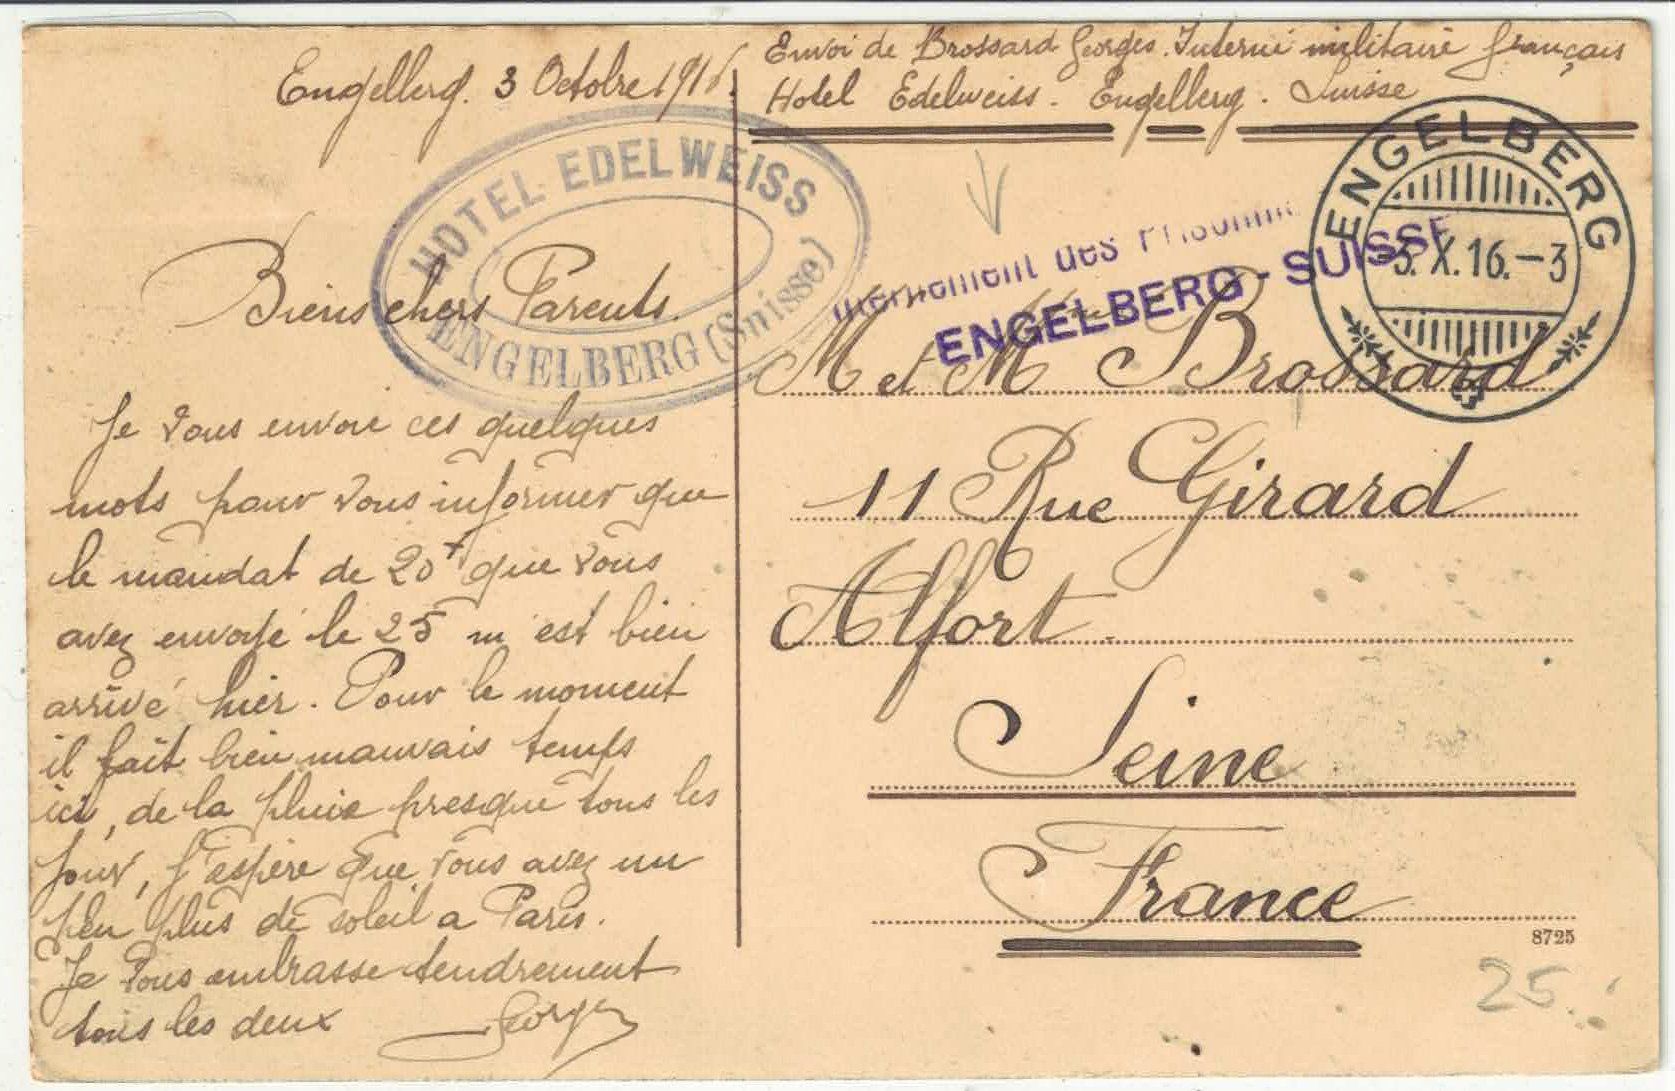 Engelberg. 3 Octobre 1916.
Envoi de Brossard Georges. Interné militaire français
Hotel Edelweiss. Engelberg. Suisse
HOTEL EDELWEISS
ENGELBERG (Suisse)
Internement des Prisonni
ENGELBERG-SUISSE
ENGELBERG
3.X.16.-3
Biens chers Parents.
Je vous envoie ces quelques
mots pour vous informer que
le mandat de 20f que vous
avez envoyé le 25 m est bien
arrivé hier. Pour le moment
il fait bien mauvais temps
ici, de la pluie presque tous les
jour, j'espère que vous avez un
peu plus de soleil a Paris.
Je vous embrasse tendrement
tous les deux Georges
M et Mme Brossard
11 Rue Girard
Alfort.
Seine
France
8725
25